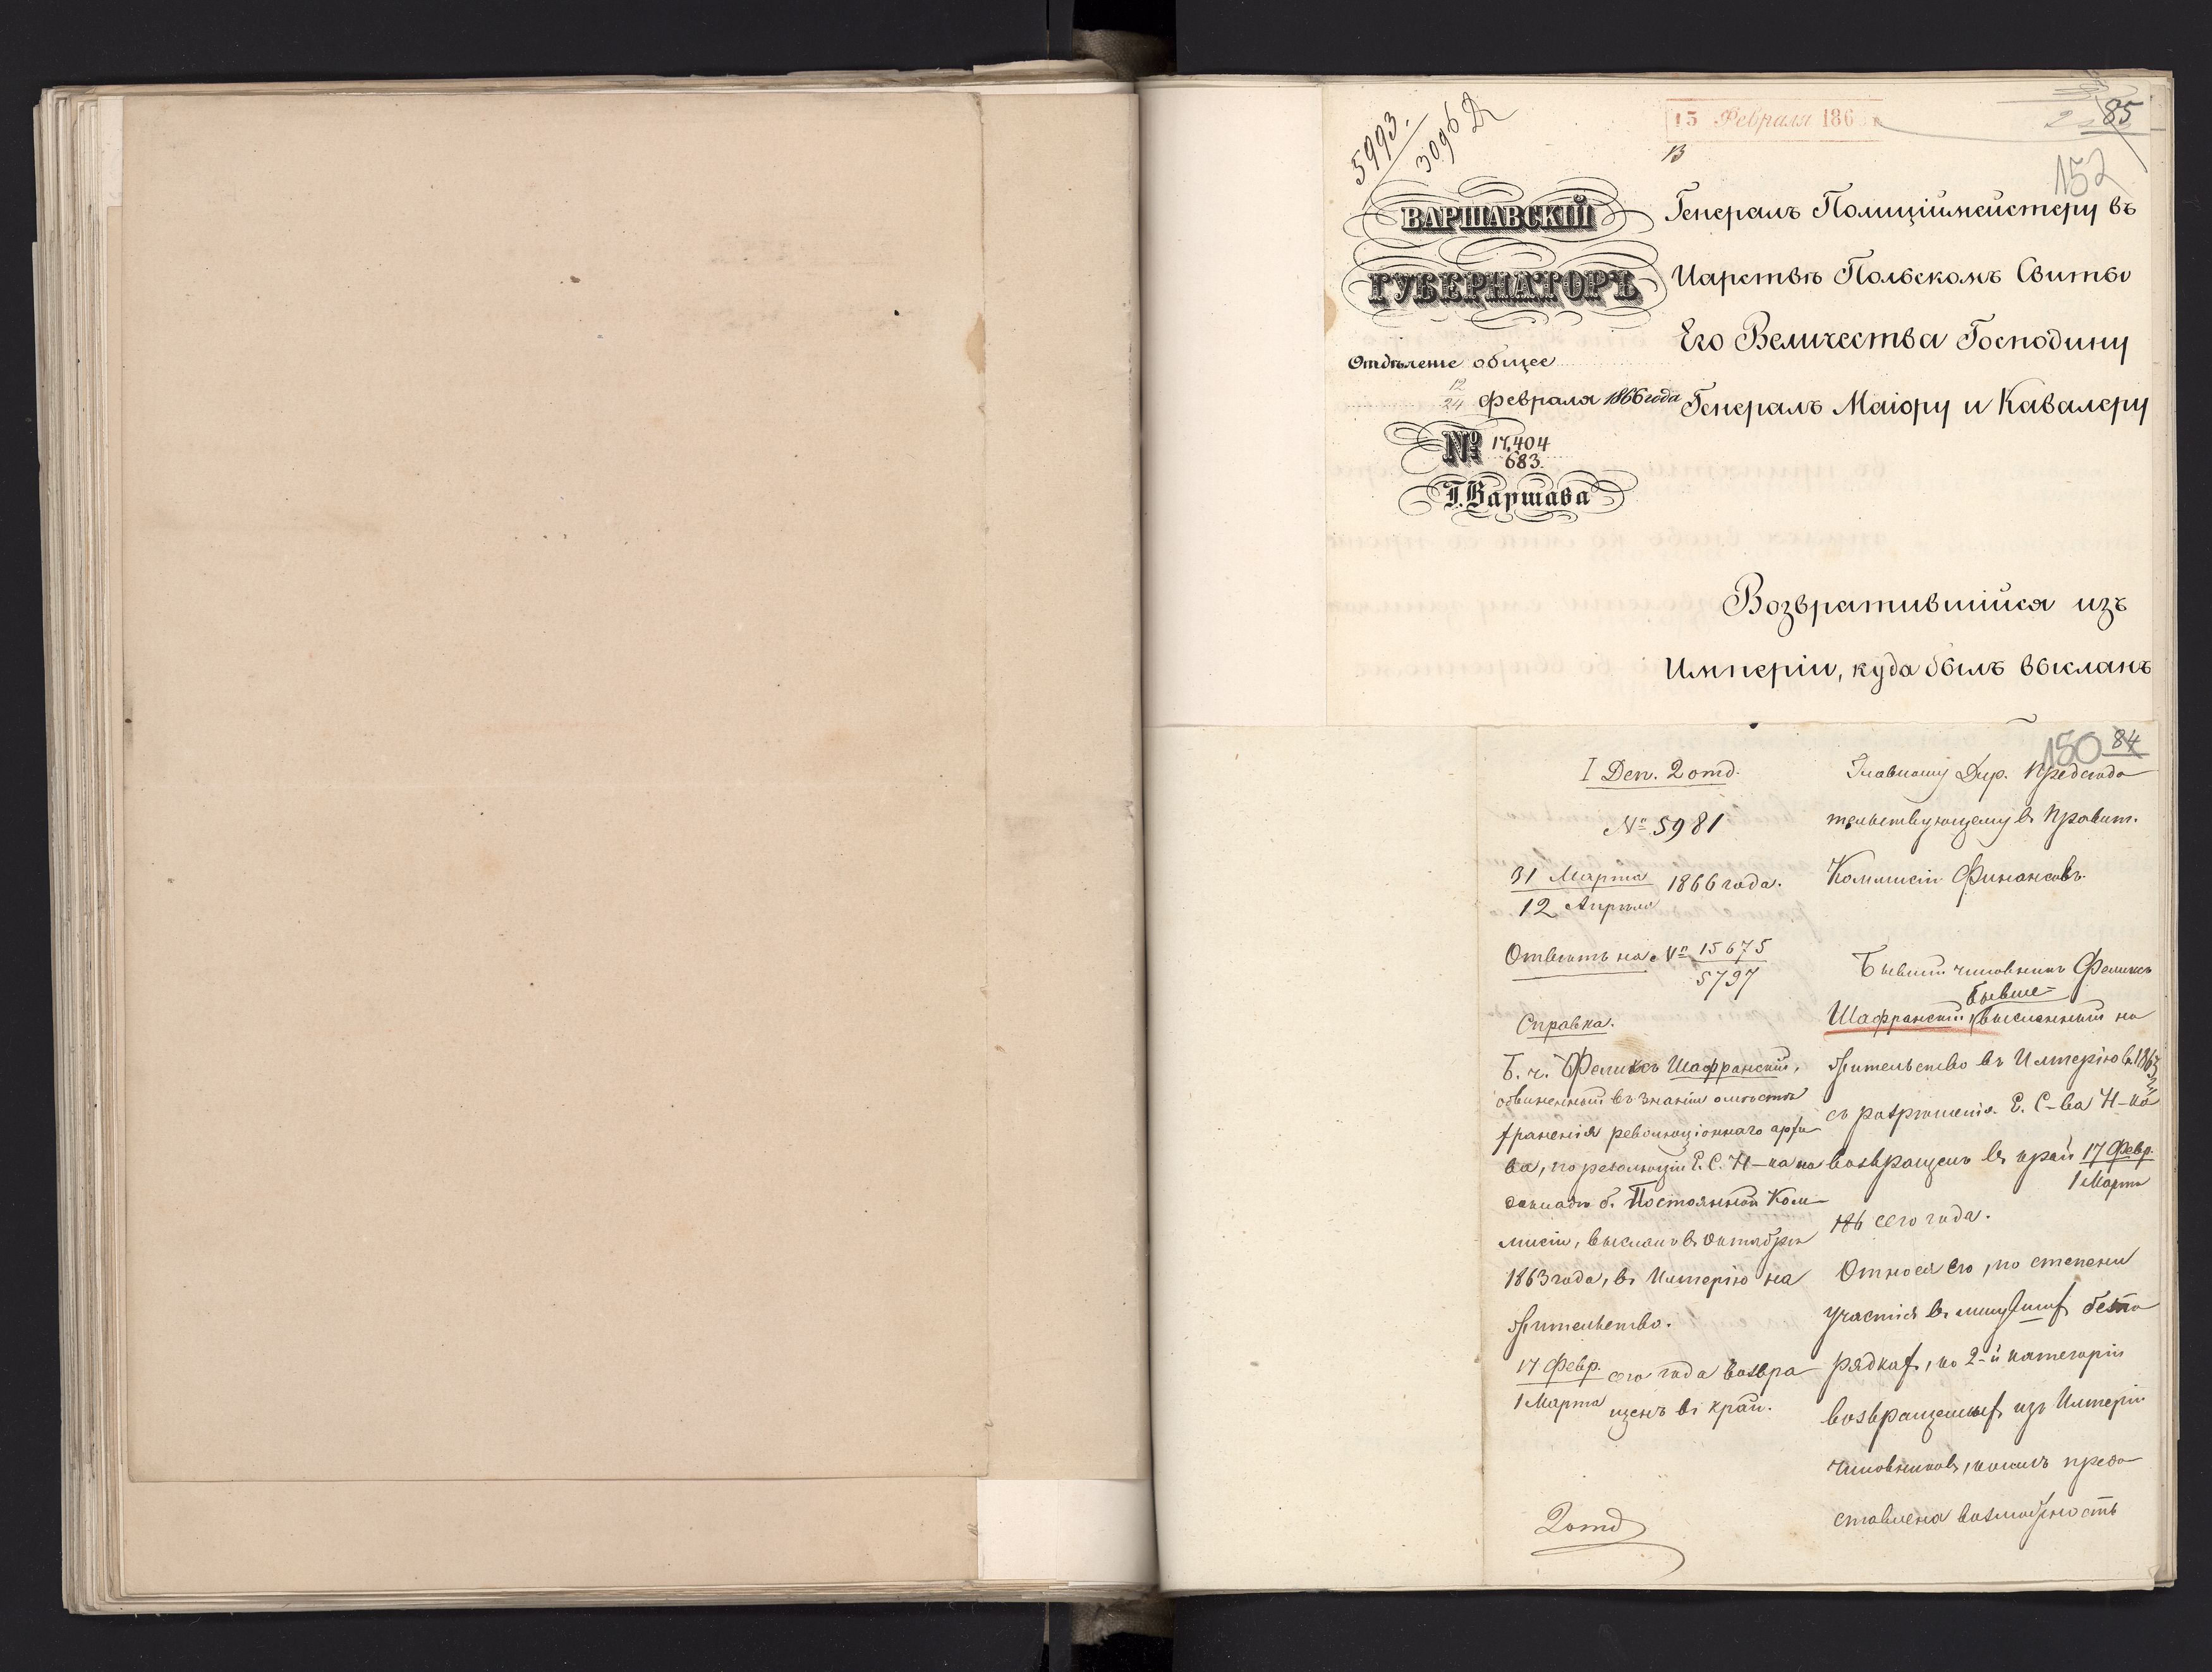 5993.
3096 Д
15 Февраля 186
85
13
152
ВАРШАВСКІЙ
ГУБЕРНАТОРЪ
Отдѣленіе общее
12/24 февраля 1866 года
№ 17,404
683.
Г. Варшава
Генералъ Полиціймейстеру въ
Царствѣ Польскомъ Свиты
Его Величества Господину
Генералъ Маіору и Кавалеру
Возвратившійся изъ
Имперіи, куда былъ высланъ
150 84
I Деп. 2 отд.
№ 5981
31 Марта
12 Апрѣля 1866 года.
Отвѣтъ на № 15675
5797
Справка.
Б. ч. Феликсъ Шафранскій,
обвиненный въ знаніи о мѣстѣ
храненія революціоннаго архи-
ва, по резолюціи Е. С. Н-ка на
докладѣ б. Постоянной Ком-
мисіи, высланъ въ Октябрѣ
1863 года, въ Имперію на
жительство.
17 Февр.
1 Марта сего года возвра
щенъ въ край.
2 отд
Главному Дир. Предсѣда
тельствующему въ Правит.
Коммисіи Финансовъ.
Бывшій чиновникъ Феликсъ
бывше-
Шафранскій, высланный на
жительство въ Имперію въ 1863
съ разрѣшенія Е. С-ва Н-ка
возвращенъ въ край 17 Февр.
1 Марта
сего года.
Относя его, по степени
участія въ минувшихъ безпо
рядкахъ, ко 2-й категоріи
возвращенныхъ изъ Имперіи
чиновниковъ, коимъ предо
ставлена возможность